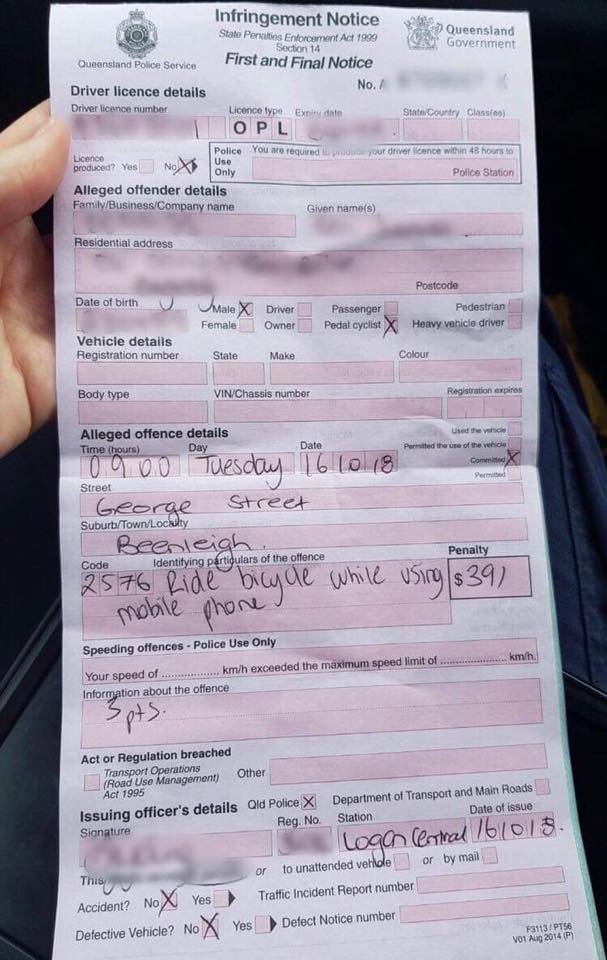 Infringement Notice
State Penalties Enforcement Act 1999
Section 14
First and Final Notice
Queensland Police Service
Queensland
Government
No.
Driver licence details
Driver licence number Licence type Expiry date State/Country Class(es)
O P L
Licence produced? Yes No X
Police Use Only
You are required to produce your driver licence within 48 hours to
Police Station
Alleged offender details
Family/Business/Company name Given name(s)
Residential address
Postcode
Date of birth Male X Driver Passenger Pedestrian
Female Owner Pedal cyclist X Heavy vehicle driver
Vehicle details
Registration number State Make Colour
Body type VIN/Chassis number Registration expires
Alleged offence details
Used the vehicle
Time (hours) Day Date Permitted the use of the vehicle
0900 Tuesday 16 10 18 Committed X
Permitted
Street
George Street
Suburb/Town/Locality
Beenleigh.
Code Identifying particulars of the offence Penalty
2576 Ride bicycle while using $391
mobile phone
Speeding offences - Police Use Only
Your speed of .................. km/h exceeded the maximum speed limit of .................... km/h.
Information about the offence
3 pts.
Act or Regulation breached
Transport Operations
(Road Use Management)
Act 1995
Other
Issuing officer's details Qld Police X Department of Transport and Main Roads
Signature Reg. No. Station Date of issue
Logan Central 16 10 18.
This or to unattended vehicle or by mail
Accident? No X Yes Traffic Incident Report number
Defective Vehicle? No X Yes Defect Notice number
F3113 / PT56
V01 Aug 2014 (P)